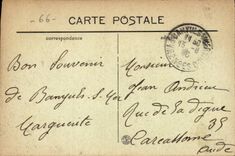 -66-
CARTE POSTALE
correspondance
Bon Souvenir
de Banyuls s-Mer
Marguerite
Monsieur
Jean Andrieu
Rue de la digue
35
Carcassonne
Aude